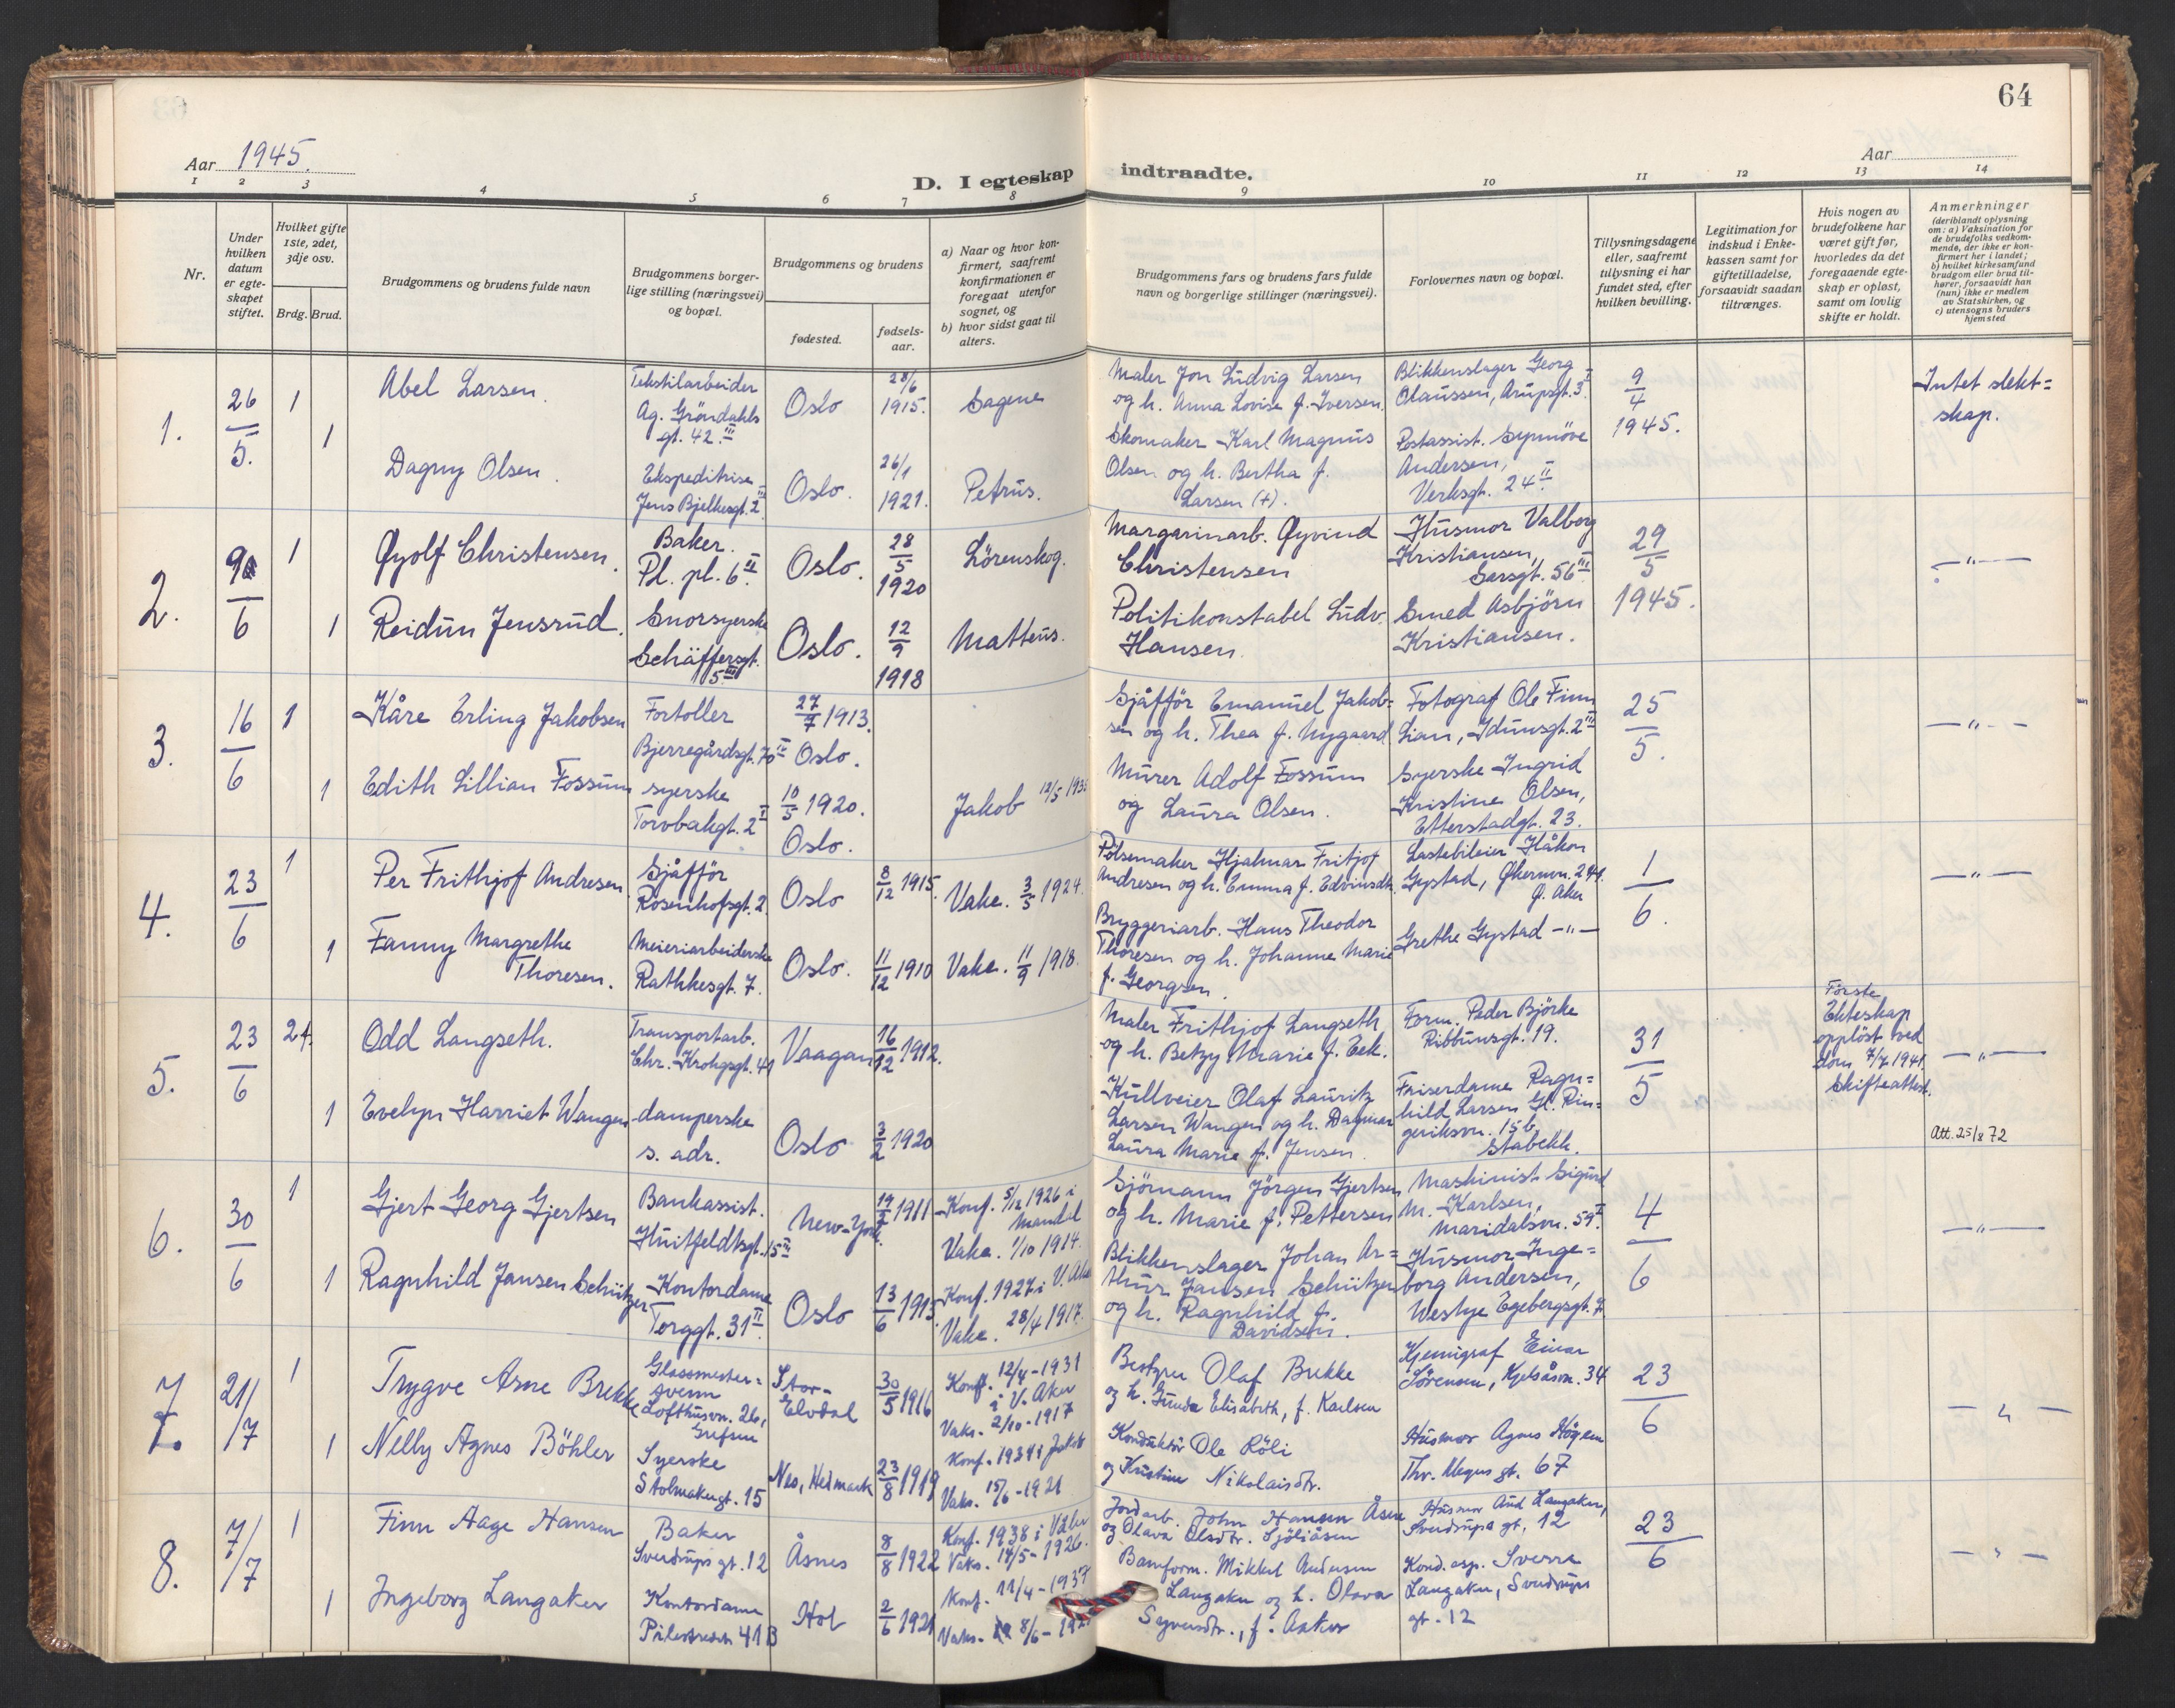 64
Aar 1945.
Aar
D. I egteskap indtraadte.
1 2 3 4 5 6 7 8 9 10 11 12 13 14
Nr.
Under
hvilken
datum
er egte-
skapet
stiftet.
Hvilket gifte
1ste, 2det,
3dje osv.
Brdg. Brud.
Brudgommens og brudens fulde navn
Brudgommens borger-
lige stilling (næringsvei)
og bopæl.
Brudgommens og brudens
fødested.
fødsels-
aar.
a) Naar og hvor kon-
firmert, saafremt
konfirmationen er
foregaat utenfor
sognet, og
b) hvor sidst gaat til
alters.
Brudgommens fars og brudens fars fulde
navn og borgerlige stillinger (næringsvei).
Forlovernes navn og bopæl.
Tillysningsdagene
eller, saafremt
tullysning ei har
fundet sted, efter
hvilken bevilling.
Legitimation for
indskud i Enke-
kassen samt for
giftetilladelse,
forsaavidt saadan
tiltrænges.
Hvis nogen av
brudefolkene har
været gift før,
hvorledes da det
foregaaende egte-
skap er opløst,
samt om lovlig
skifte er holdt.
Anmerkninger
(deriblandt oplysning
om: a) Vaksination for
de brudefolks vedkom-
mende, der ikke er kon-
firmert her i landet;
b) hvilket kirkesamfund
brudgom eller brud til-
hører, forsaavidt han
(hun) ikke er medlem
av Statskirken, og
c) utensogns bruders
hjemsted
1.
26
5.
1
Abel Larsen.
Tekstilarbeider
Ag. Gröndahls
gt. 42.III
Oslo
28/6
1915.
Sagene
Maler Jon Ludvig Larsen
og h. Anna Lovise f. Iversen.
Blikkenslager Georg
Olaussen, Arupsgt. 3I
9
4
1945.
Intet slekt=
skap.
1
Dagny Olsen.
Ekspeditrise
Jens Bjelkesgt. 2III
Oslo.
26/1
1921.
Petrus.
Skomaker Karl Magnus
Olsen og h. Bertha f.
Larsen (+).
Postassist. Synnöve
Andersen,
Verksgt. 24II.
2.
9
6
1
Øyolf Christensen.
Baker.
Pl. pl. 6II.
Oslo.
28
5
1920
Lörenskog.
Margarinarb. Øyvind
Christensen
Husmor Valborg
Kristiansen,
Sarsgt. 56III
29
5
1945.
— " —
1
Reidun Jensrud.
Snorsyerske
Schäffersgt.
15III
Oslo.
12
9
1918
Matteus.
Politikonstabel Ludv.
Hansen.
Smed Asbjörn
Kristiansen.
3.
16
6
1
Kåre Erling Jakobsen
Fortoller
Bjerregårdsgt. 70IV
27
7 1913.
Oslo.
Sjåfför Emanuel Jakob=
sen og h. Thea f. Nygaard
Fotograf Ole Finn
Lian, Idunsgt. 2III
25
5.
— " —
1
Edith Lillian Fossum
syerske
Torvbakgt. 2I
10
5 1920.
Oslo.
Jakob 12/5 1935
Murer Adolf Fossum
og Laura Olsen.
Syerske Ingrid
Kristine Olsen,
Etterstadgt. 23.
4.
23
6
1
Per Frithjof Andresen
Sjåfför
Rosenhofsgt. 2.
Oslo
8
12 1915.
Vake. 3/5 1924.
Pölsemaker Hjalmar Fritjof
Andresen og h. Emma f. Edvinsdtr.
Lastebileier Håkon
Gystad, Økernvn. 244.
Ø. Aker
1
6.
— " —
1
Fanny Margrethe
Thoresen.
Meieriarbeiderske
Rathkesgt. 7.
Oslo.
11
12 1910
Vake. 11/9 1918.
Bryggeriarb. Hans Theodor
Thoresen og h. Johanne Marie
f. Georgsen.
Grethe Gystad — " —
5.
23
6
2
Odd Langseth.
Transportarb.
Chr. Krohgsgt. 41
Vaagan
16
12 1912.
Maler Frithjof Langseth
og h. Betzy Marie f. Eek.
Form. Peder Björke
Ribbunsgt. 19.
31
5
Första
Ekteskap
opplöst ved
dom 7/7 1941.
Skifteattest.
— " —
1
Evelyn Harriet Wangen
damperske
s. adr.
Oslo
3
2 1920
Kullveier Olaf Lauritz
Larsen Wangen og h. Dagmar
Laura Marie f. Jensen.
Friserdame Ragn=
hild Larsen Gl. Rin=
geriksvn. 15b.
Stabekk.
Att. 25/8 72
6.
30
6
1
Gjert Georg Gjertsen
Bankassist.
Huitfeldtsgt. 15III
New-York.
1911
Konf. 5/12 1926 i
Mandal
Vake. 1/10 1914.
Sjömann Jörgen Gjertsen
og h. Marie f. Pettersen
Maskinist Sigurd
M. Karlsen,
Maridalsvn. 59I.
4
6
— " —
1
Ragnhild Jansen Schützer
Kontordame
Torggt. 31II.
Oslo
13
6 1913.
Konf. 1927 i V. Aker
Vake. 28/4 1917.
Blikkenslager Johan Ar=
thur Jansen Schützer
og h. Ragnhild f.
Davidsen.
Husmor Inge=
borg Andersen,
Westye Egebergsgt. 7.
7.
21/
/7
1
Trygve Arne Brekke
Glassmester=
svenn
Lofthusvn. 26,
Grefsen
Stor-
Elvdal
30
5 1916
Konf. 12/4-1931
i V. Aker
Vaks. 2/10-1917
Bestyrer Olaf Brekke
og h. Gunda Elisabeth, f. Karlsen
Kjemigraf Einar
Sörensen, Kjelsåsvn. 34
23
6
— " —
1
Nelly Agnes Böhler
Syerske
Stolmakergt. 15
Nes, Hedmark
23
8 1919
Konf. 1934 i Jakob
Vaks. 15/6-1921
Konduktör Ole Röli
og Kristine Nikolaisdtr.
Husmor Agnes Högsen
Thv. Meyers gt. 67
8.
7/
/7
1
Finn Aage Hansen
Baker
Sverdrups gt. 12
Åsnes
8
8 1922
Konf. 1938 i Våler
Vaks. 14/5-1926.
Jordarb. John Hansen Åsen
og Olava Olsdtr. Sjöliåsen
Husmor Aud Langaker,
Sverdrups gt. 12
23
6
— " —
1
Ingeborg Langaker
Kontordame
Pilestredet 41B
Hol
2
6 1921
Konf. 11/4-1937
Vaks. 8/6-
Baneform. Mikkel Andersen
Langaker og h. Olava
Syversdtr., f. Aaker
Kond.asp. Sverre
Langaker, Sverdrups
gt. 12